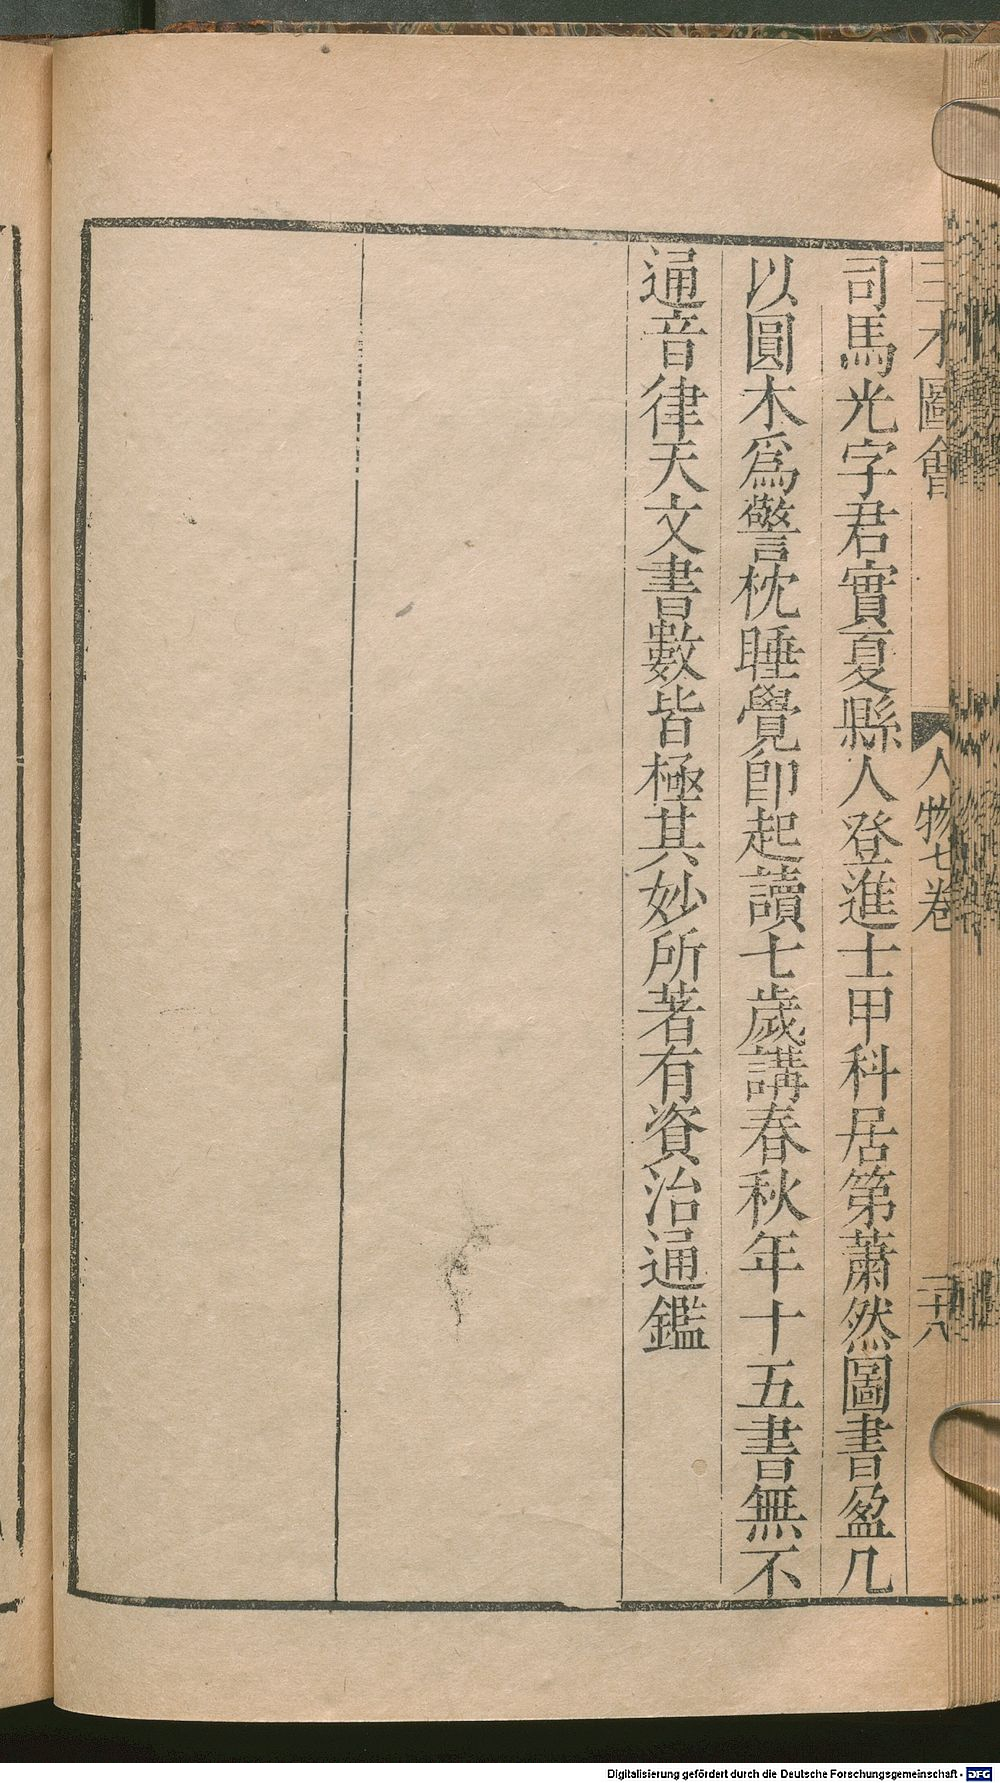 三才圖會 人物七卷 二十八
司馬光字君實夏縣人登進士甲科居第蕭然圖書盈几
以圓木爲警枕睡覺卽起讀七歲講春秋年十五書無不
通音律天文書數皆極其妙所著有資治通鑑
Digitalisierung gefördert durch die Deutsche Forschungsgemeinschaft - DFG